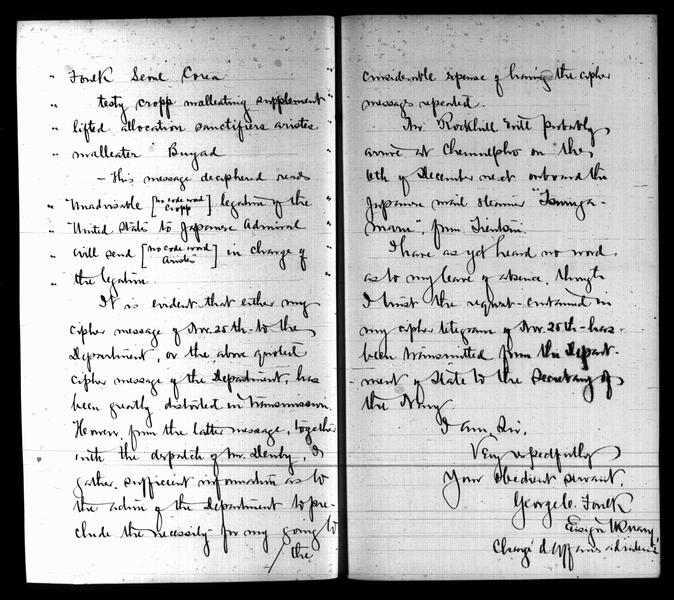 " Foulk Seoul Corea
" testy cropp malleating supplement "
" lifted allocation sanctifiers aristes "
" malleater Bugad "
— This message deciphered reads
" Unadvisable [no code word Cropp] legation of the "
" United State to Japanese Admiral "
" will send [no code word Aristes] in charge of "
" the legation. "
It is evident that either my
cipher message of Nov. 25th to the
Department, or the above quoted
cipher message of the Department, has
been greatly distorted in transmission.
However, from the latter message, together
with the dispatch of Mr. Denby, I
gather sufficient information as to
the action of the Department to pre-
clude the necessity for my going to
the
considerable expense of having the cipher
message repeated.
Mr. Rockhill will probably
arrive at Chemulpho on the
6th of December next onboard the
Japanese mail steamer "Tsuruga-
maru", from Tientsin.
I have as yet heard no word
as to my leave of absence, though
I trust the request contained in
my cipher telegram of Nov. 25th has
been transmitted from the Depart-
ment of State to the Secretary of
the Navy.
I am, Sir,
Very respectfully
Your obedient servant,
George C. Foulk
Ensign U.S. Navy,
Chargé d'Affaires ad interim